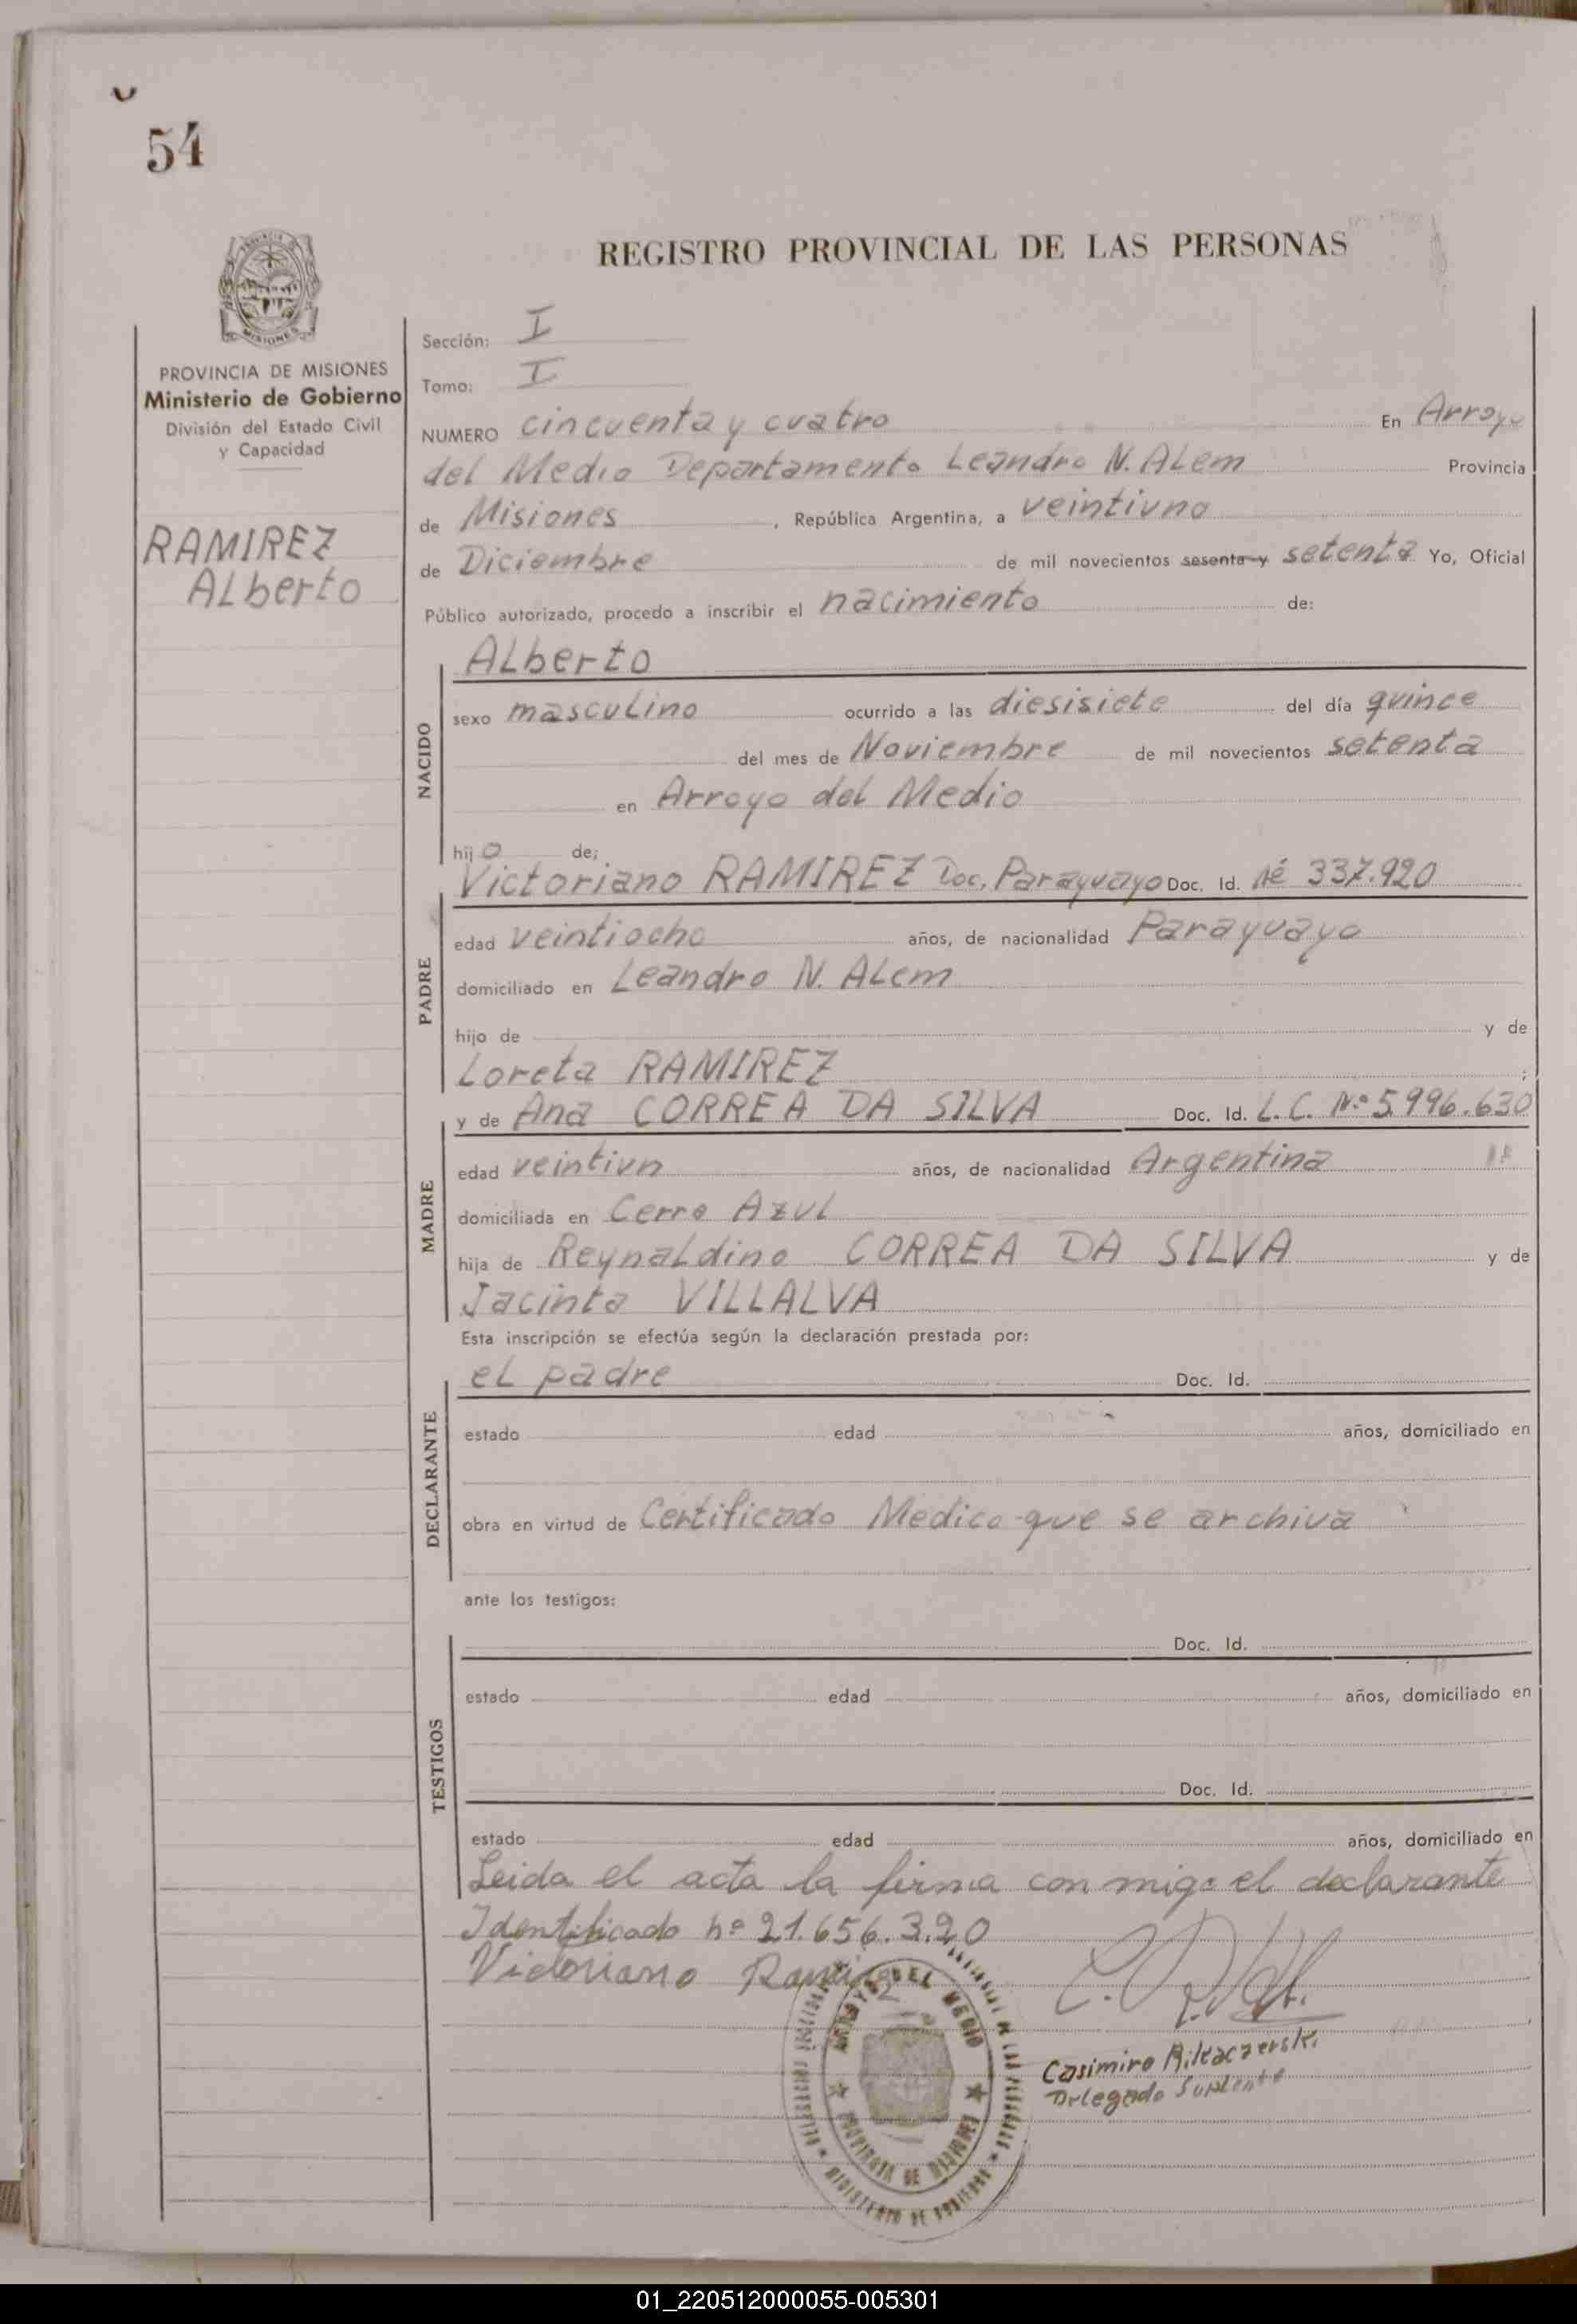 54
REGISTRO PROVINCIAL DE LAS PERSONAS
MISIONES
PROVINCIA DE MISIONES
Ministerio de Gobierno
División del Estado Civil
y Capacidad
RAMIREZ
Alberto
Sección: I
Tomo: I
NUMERO cincuenta y cuatro En Arroyo
del Medio Departamento Leandro N. ALem Provincia
de Misiones, República Argentina, a veintiuno
de Diciembre de mil novecientos sesenta y setenta Yo, Oficial
Público autorizado, procedo a inscribir el nacimiento de:
NACIDO
ALberto
sexo masculino ocurrido a las diesisiete del día quince
del mes de Noviembre de mil novecientos setenta
en Arroyo del Medio
hijo de;
PADRE
Victoriano RAMIREZ Doc. Paraguayo Doc. Id. Nº 337.920
edad veintiocho años, de nacionalidad Paraguayo
domiciliado en Leandro N. ALem
hijo de y de
Loreta RAMIREZ ;
MADRE
y de Ana CORREA DA SILVA Doc. Id. L.C. Nº 5.996.630
edad veintiun años, de nacionalidad Argentina
domiciliada en Cerro Azul
hija de Reynaldino CORREA DA SILVA y de
Jacinta VILLALVA
Esta inscripción se efectúa según la declaración prestada por:
DECLARANTE
el padre Doc. Id.
estado edad años, domiciliado en
obra en virtud de Certificado Medico que se archiva
ante los testigos:
TESTIGOS
Doc. Id.
estado edad años, domiciliado en
Doc. Id.
estado edad años, domiciliado en
Leida el acta la firma con migo el declarante
Identificado nº 21.656.320
Victoriano Ramirez
ARROYO DEL MEDIO
PROVINCIA DE MISIONES
MINISTERIO DE GOBIERNO
Casimiro
Delegado Suplente
01_220512000055-005301